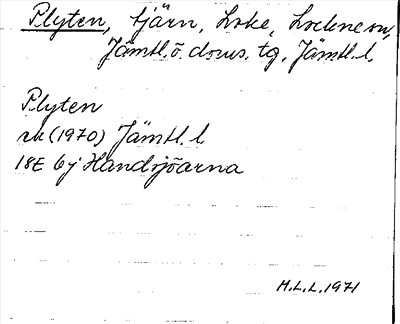 Plyten, tjärn, Loke, Lockne sn,
Jämtl. ö. doms. tg, Jämtl. l.
Plyten
rk (1970) Jämtl. l.
18E 6j Handsjöarna
M.L.L. 1971